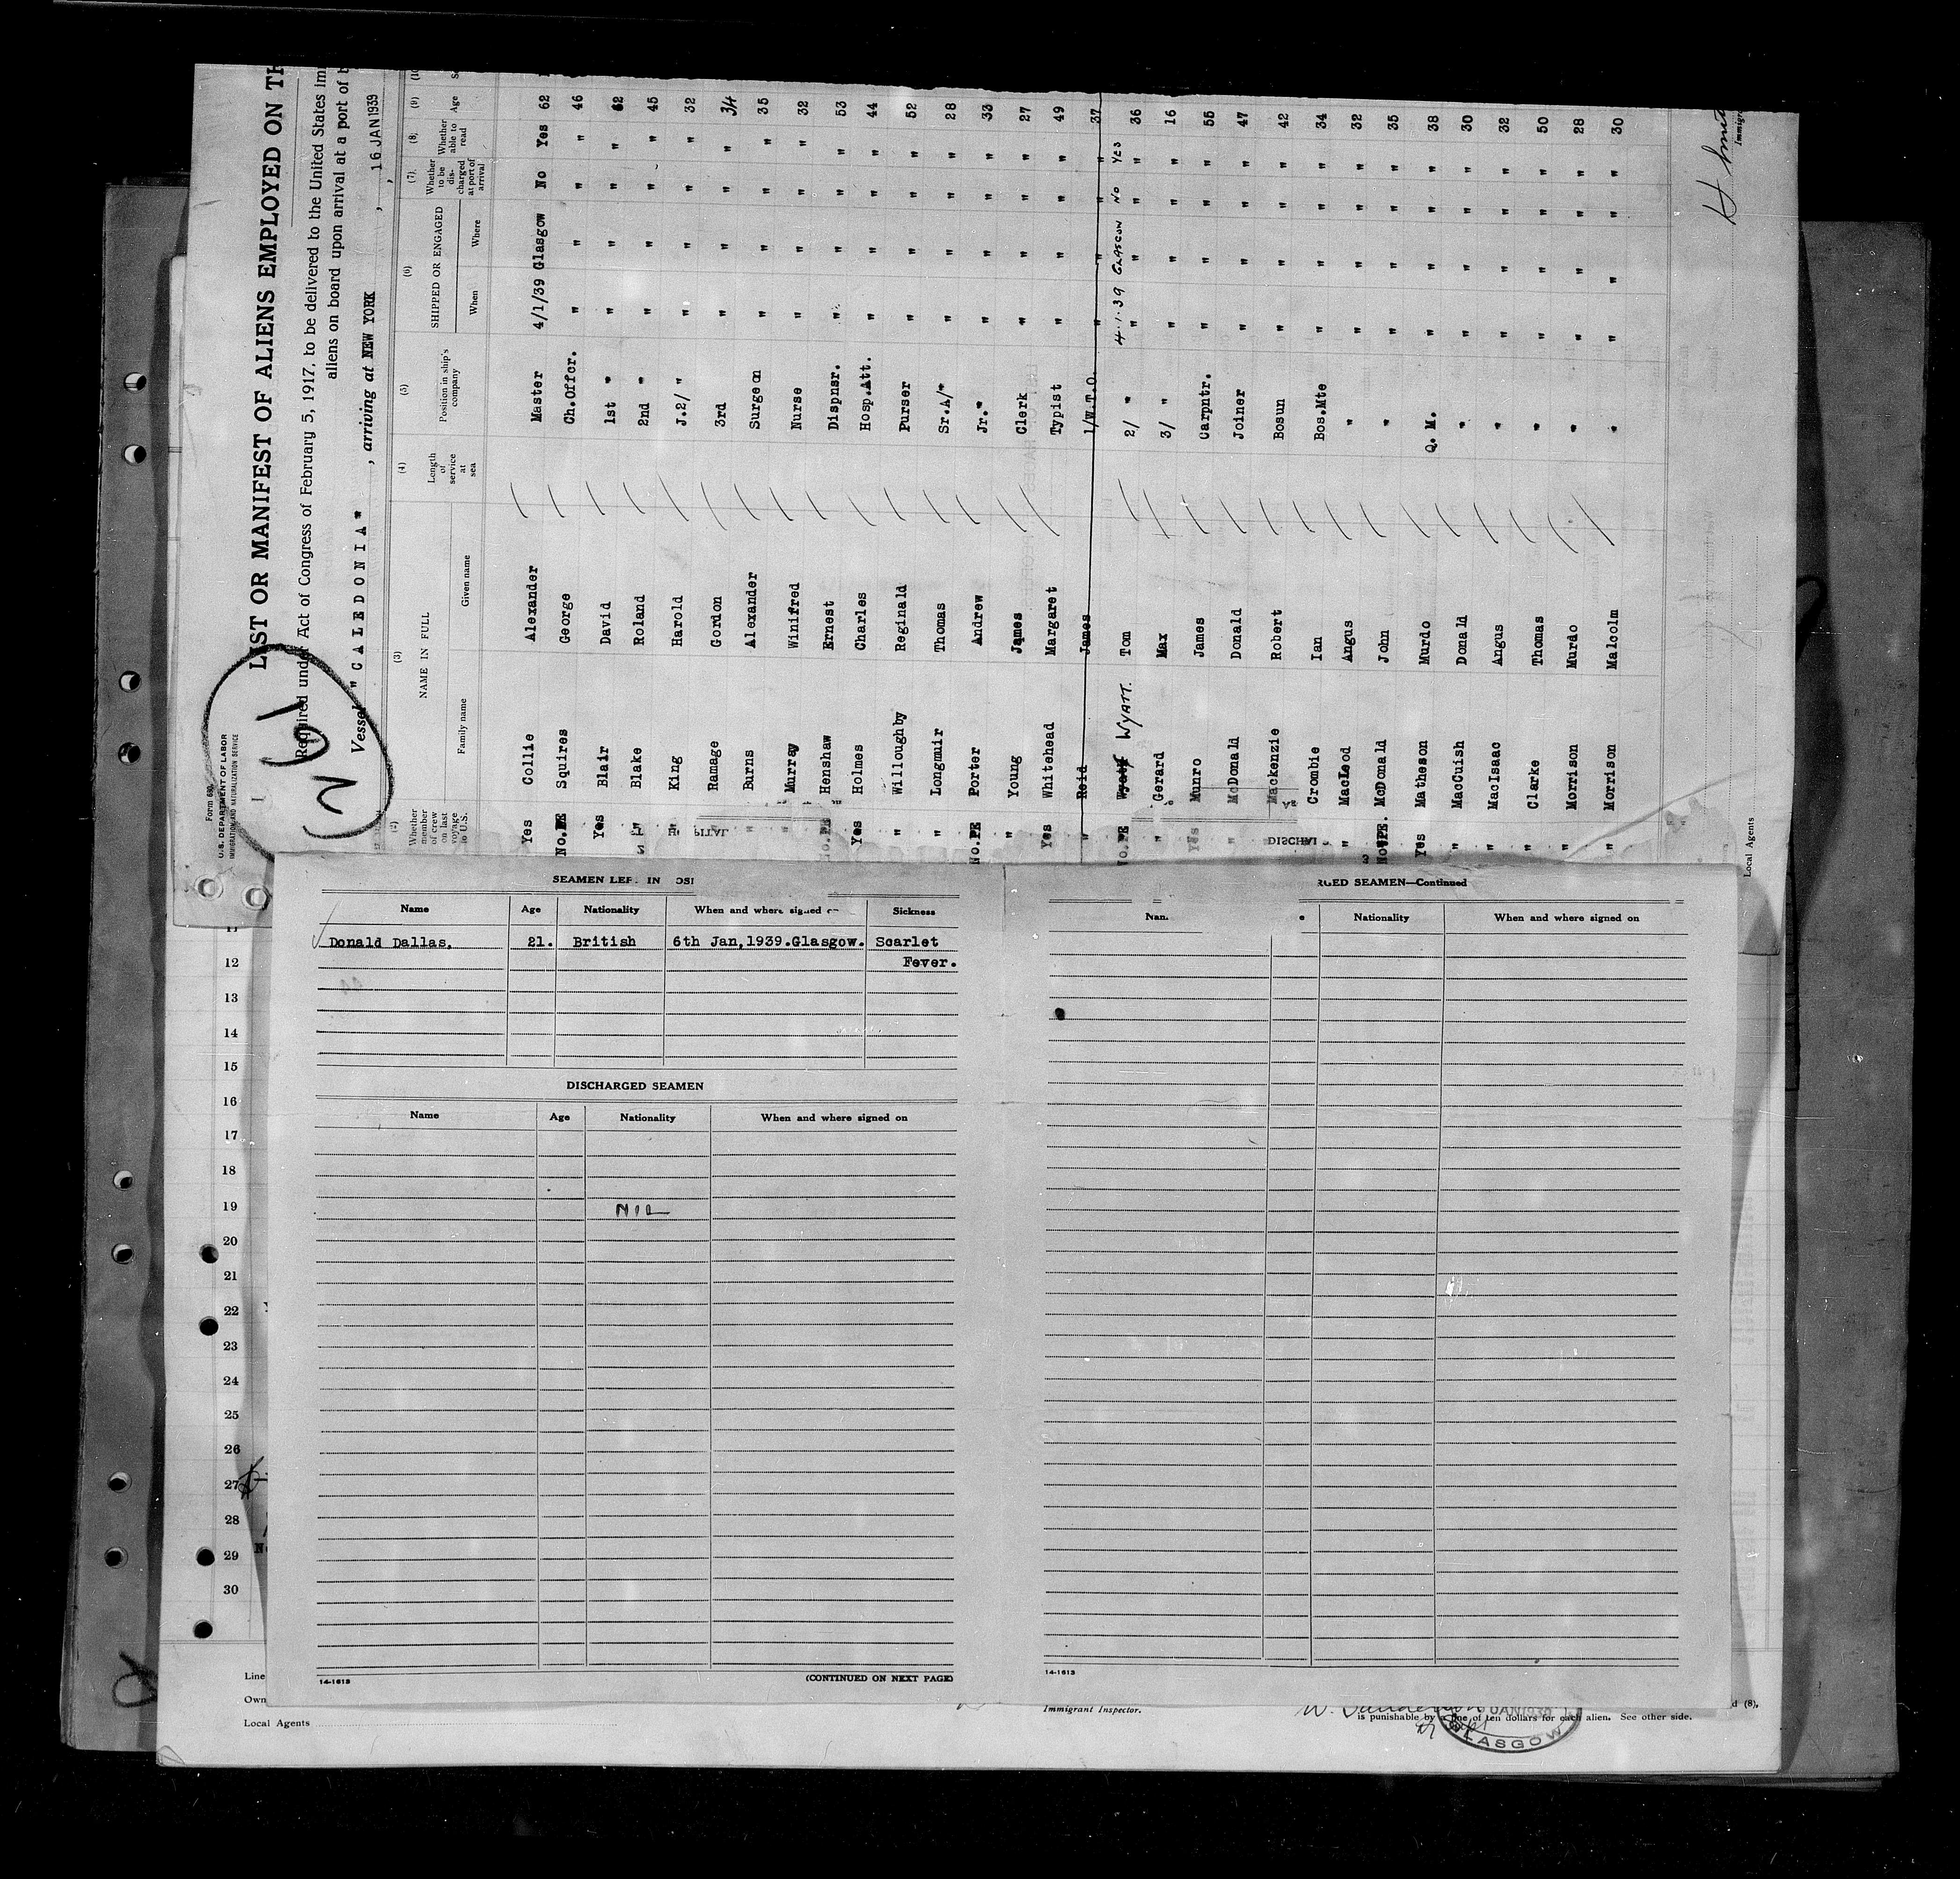 Form 680
U. S. DEPARTMENT OF LABOR
IMMIGRATION AND NATURALIZATION SERVICE
LIST OR MANIFEST OF ALIENS EMPLOYED ON TH
Required under Act of Congress of February 5, 1917, to be delivered to the United States im
aliens on board upon arrival at a port of
Vessel "CALEDONIA", arriving at NEW YORK, 16 JAN 1939
(2) (3) (4) (5) (6) (7) (8) (9)
Whether member of crew on last voyage to U.S. NAME IN FULL Family name Given name Length of service at sea Position in ship's company SHIPPED OR ENGAGED When Where Whether to be discharged at port of arrival Whether able to read Age
Yes Collie Alexander Master 4/1/39 Glasgow No Yes 62
No.PE Squires George Ch.Offcr. " " " " 46
Yes Blair David 1st " " " " " 62
" Blake Roland 2nd " " " " " 45
King Harold J.2/ " " " " " 32
Ramage Gordon 3rd " " " " 34
" Burns Alexander Surgeon " " " " 35
" Murray Winifred Nurse " " " " 32
No.PE Henshaw Ernest Dispnsr. " " " " 53
Yes Holmes Charles Hosp.Att. " " " " 44
" Willoughby Reginald Purser " " " " 52
" Longmuir Thomas Sr.A/" " " " " 28
No.PE Porter Andrew Jr." " " " " 33
" Young James Clerk " " " " 27
Yes Whitehead Margaret Typist " " " " 49
" Reid James 1/W.T.O. " " " " 37
No.PE Wyatt WYATT. Tom 2/ " 4.1.39 GLASGOW NO YES 36
" Gerard Max 3/ " " " " " 16
Yes Munro James Carpntr. " " " " 55
" McDonald Donald Joiner " " " " 47
Mackenzie Robert Bosun " " " " 42
Crombie Ian Bos.Mte " " " " 34
" MacLeod Angus " " " " " 32
No.PE. McDonald John " " " " " 35
Yes Matheson Murdo Q. M. " " " " 38
" MacCuish Donald " " " " " 30
" MacIsaac Angus " " " " " 32
" Clarke Thomas " " " " " 50
" Morrison Murdo " " " " " 28
" Morrison Malcolm " " " " " 30
Local Agents
SEAMEN LEF IN OSI
Name Age Nationality When and where signed Sickness
Donald Dallas. 21. British 6th Jan,1939.Glasgow. Scarlet
Fever.
DISCHARGED SEAMEN
Name Age Nationality When and where signed on
NIL
14-1613 (CONTINUED ON NEXT PAGE)
RGED SEAMEN—Continued
Nam Nationality When and where signed on
14-1613
11
12
13
14
15
16
17
18
19
20
21
22
23
24
25
26
27
28
29
30
Line
Own
Local Agents
Immigrant Inspector.
d (8),
is punishable by a fine of ten dollars for each alien. See other side.
GLASGOW